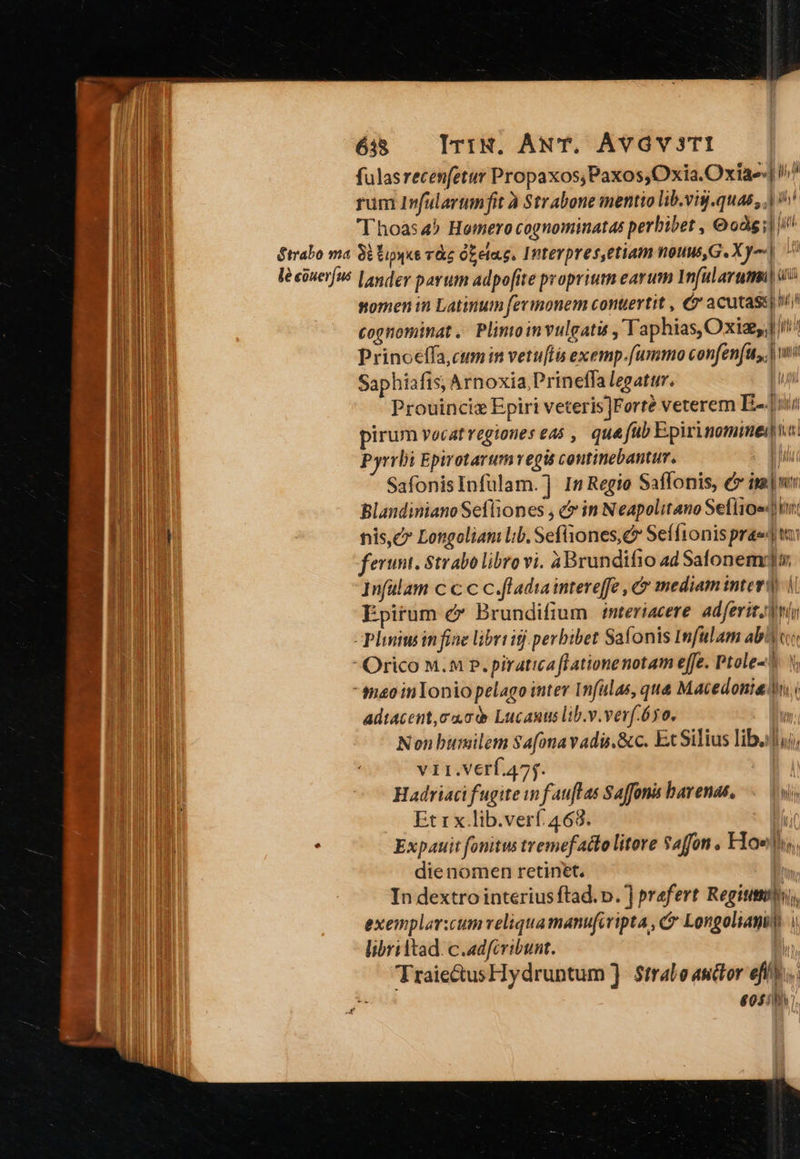 638 ITIN. ANT. AVGVSTI
ſulas recenſetur Propaxos, Paxos, Oxia. Oxiae-
rum Inſularum fit à Strabone mentio lib. viij. quas,
Thoas ab Homero cognominatas perhibet, Θοὰς
Strabo malè cõuerſus
δὲ εἴρηκε τὰς ὀξείας. Interpres, etiam nouus, G. Xy-
lander parum adpoſite proprium earum Inſularum
nomen in Latinum ſermonem conuertit, & acutas
cognominat. Plinio in vulgatis, Taphias, Oxiæ,
Princeſſa, cum in vetuſtis exemp. ſummo conſenſu,
Saphiaſis, Arnoxia, Prineſſa legatur.
Prouinciæ Epiri veteris] Fortè veterem E-
pirum vocat regiones eas, quæ ſub Epiri nomine
Pyrrhi Epirotarum regis continebantur.
Saſonis Inſulam.] In Regio Saſſonis, & in
Blandiniano Seſſiones, & in Neapolitano Seſſio-
nis, & Longoliani lib. Seſſiones, & Seſſionis præ-
ferunt. Strabo libro vi. à Brundiſio ad Saſonem
Inſulam c c c c. ſtadia intereſſe, & mediam inter
Epirum & Brundiſium interiacere adſerit.
Plinius in fine libri iij perhibet Saſonis Inſulam ab
Orico M. M P. piratica ſtatione notam eſſe. Ptole-
mæo in Ionio pelago inter Inſulas, quæ Macedoniæ
adiacent, σασὼ Lucanus lib. v. verſ. 650.
Non humilem Saſona vadis. &c. Et Silius lib.
vii. verſ. 475.
Hadriaci fugite in fauſtas Saſſonis harenas,
Et ix. lib. verſ. 468.
Expauit ſonitus tremefacto litore Saſſon. Ho-
die nomen retinet.
In dextro interius ſtad. v.] præfert Regium
exemplar: cum reliqua manuſcripta, & Longoliani
libri ſtad. c. adſcribunt.
Traiectus Hydruntum] Strabo auctor eſt
eos